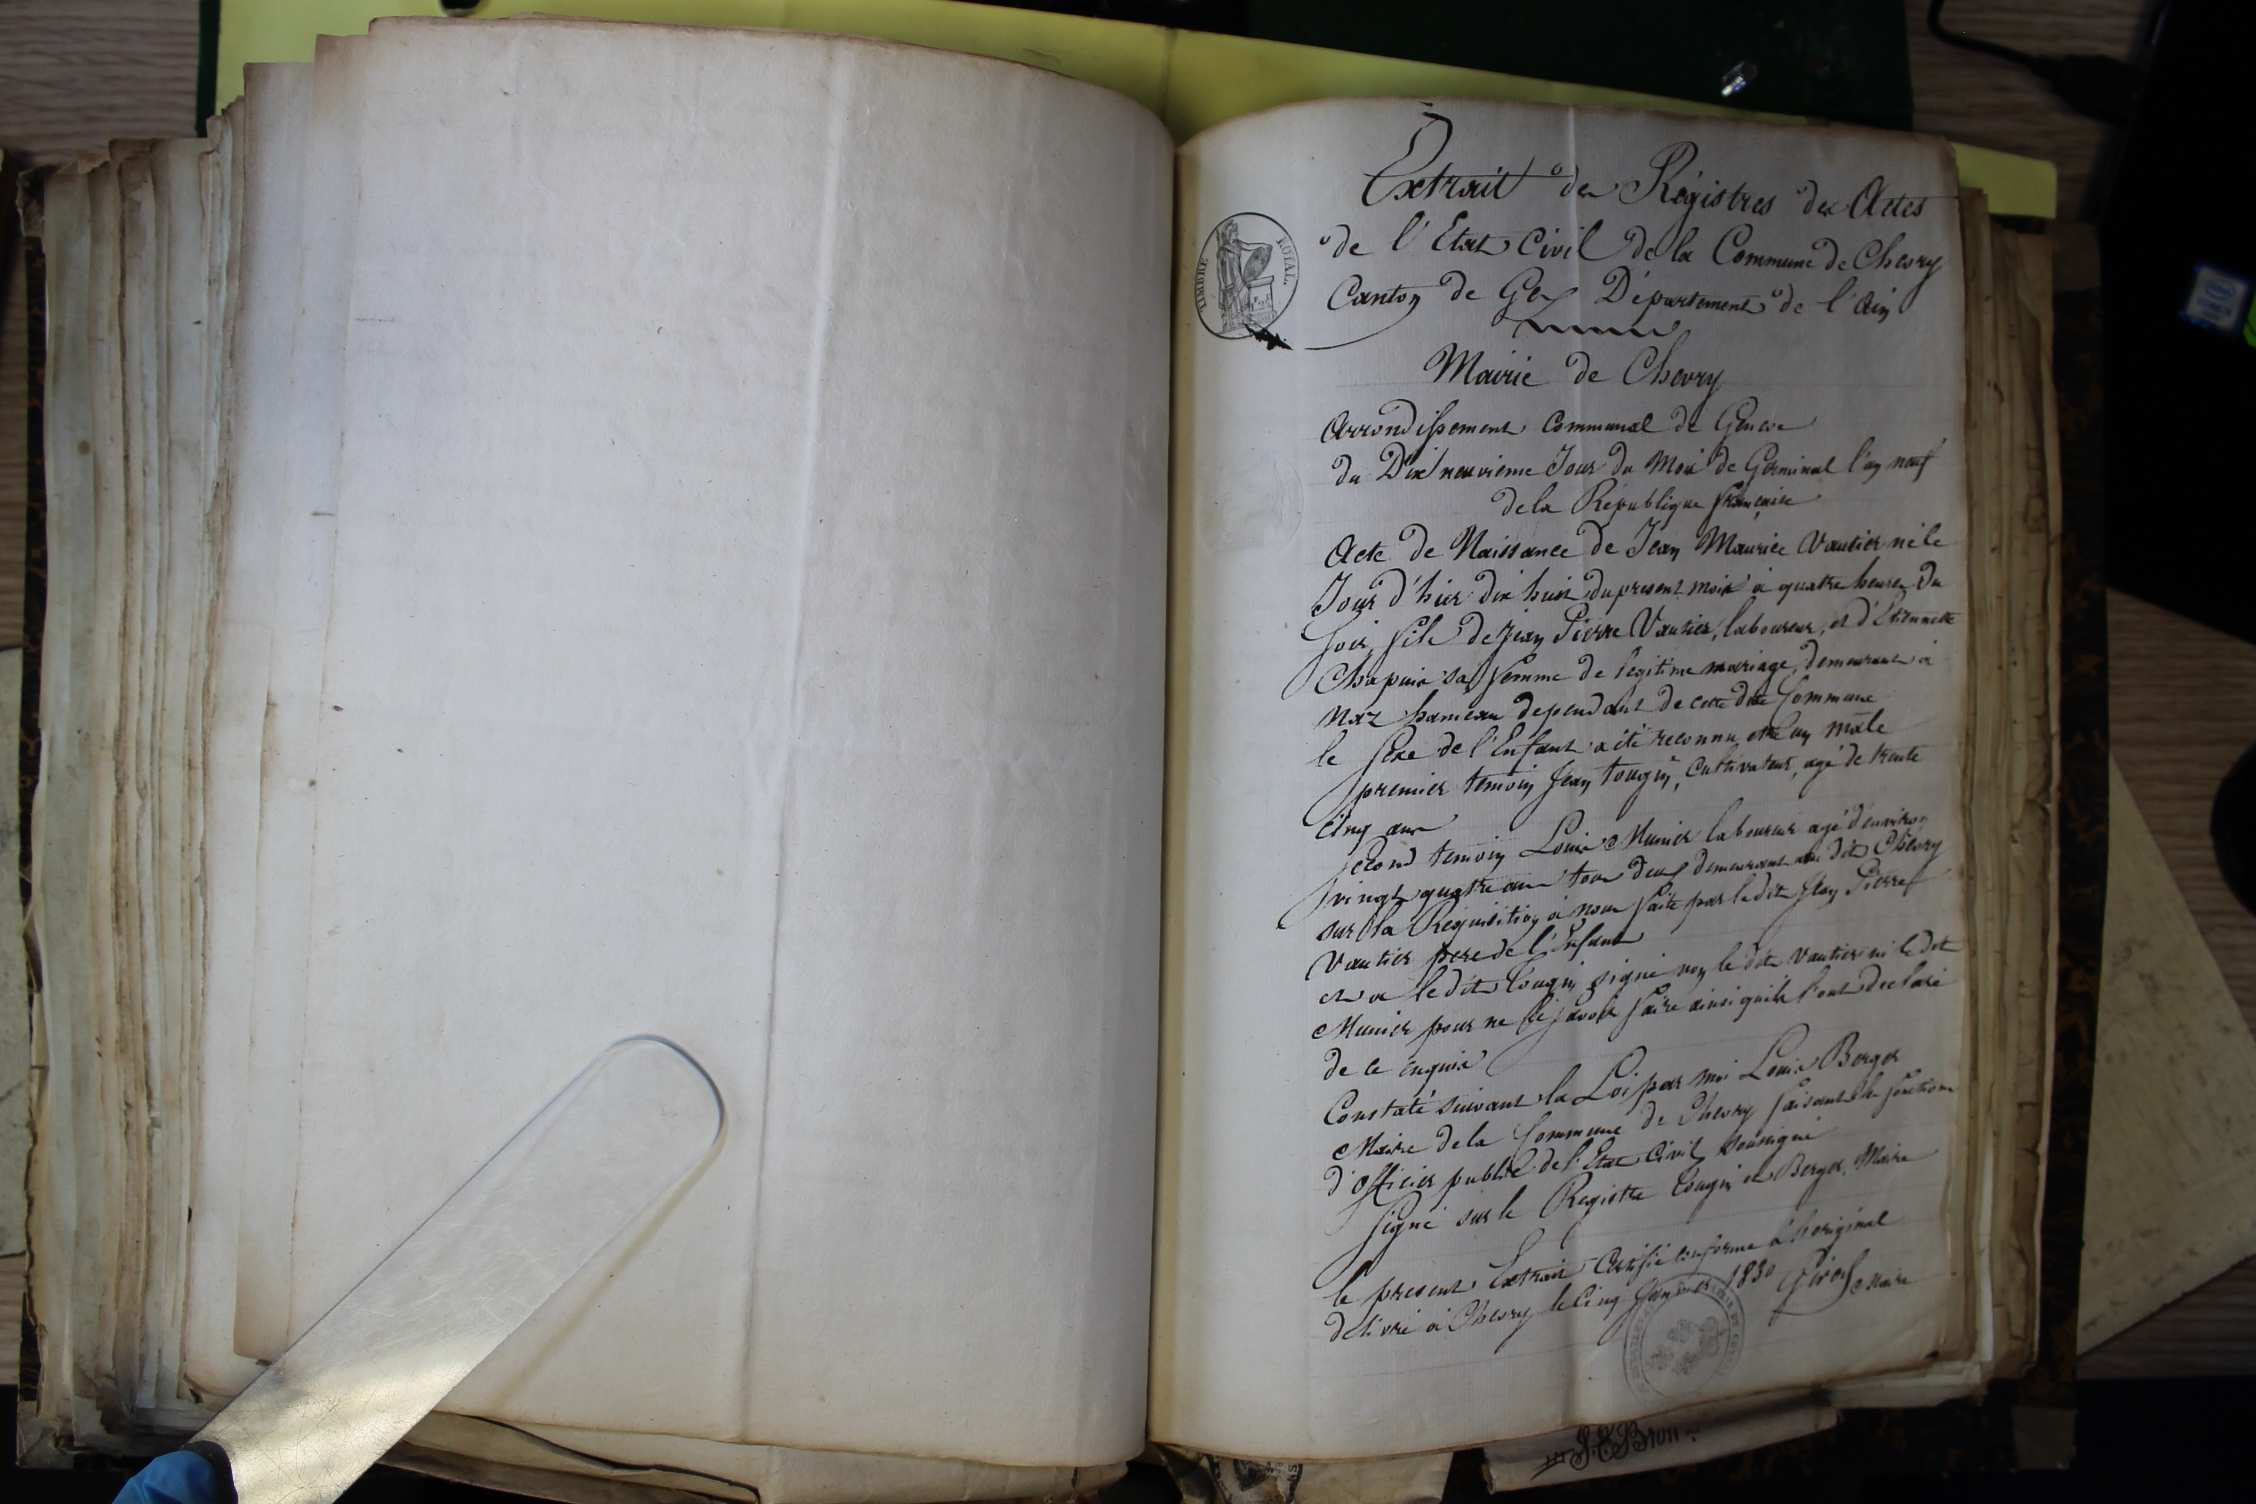 Extrait des Régistres des Actes
de l'Etat Civil de la Commune de Chevry
Canton de Gex Département de l'Ain
TIMBRE ROYAL
Mairie de Chevry
Arrondissement Communal de Geneve
du Dix neuvieme Jour du Mois de Germinal l'an neuf
de la République française
Acte de Naissance de Jean Maurice Vautier né le
Jour d'hier dix huit du present mois à quatre heures du
soir, fils de Jean Pierre Vautier, laboureur, et d'Etiennette
Chapuis sa femme de legitime mariage, demeurant à
Naz hameau dependant de cette dite Commune
le sexe de l'Enfant a été reconnu etre un mâle
premier temoin Jean Tougin, Cultivateur, agé de trente
cinq ans
second temoin Louis Munier laboureur agé d'environ
vingt quatre ans tous deux demeurant au dit Chevry
sur la Requisition à nous faite par le dit Jean Pierre
Vautier pere de l'Enfant
et a le dit Tougin signé non le dit Vautier ni le dit
Munier pour ne le savoir faire ainsi quils l'ont declaré
de ce enquis
Constaté suivant la Loi par moi Louis Berger
Maire de la Commune de Chevry faisant les fonctions
d'officier public de l'Etat Civil soussigné
signé sur le Registre Tougin et Berger, Maire
le present Extrait Certifié conforme à l'original
delivré à Chevry le cinq Janvier 1830 Girod Maire